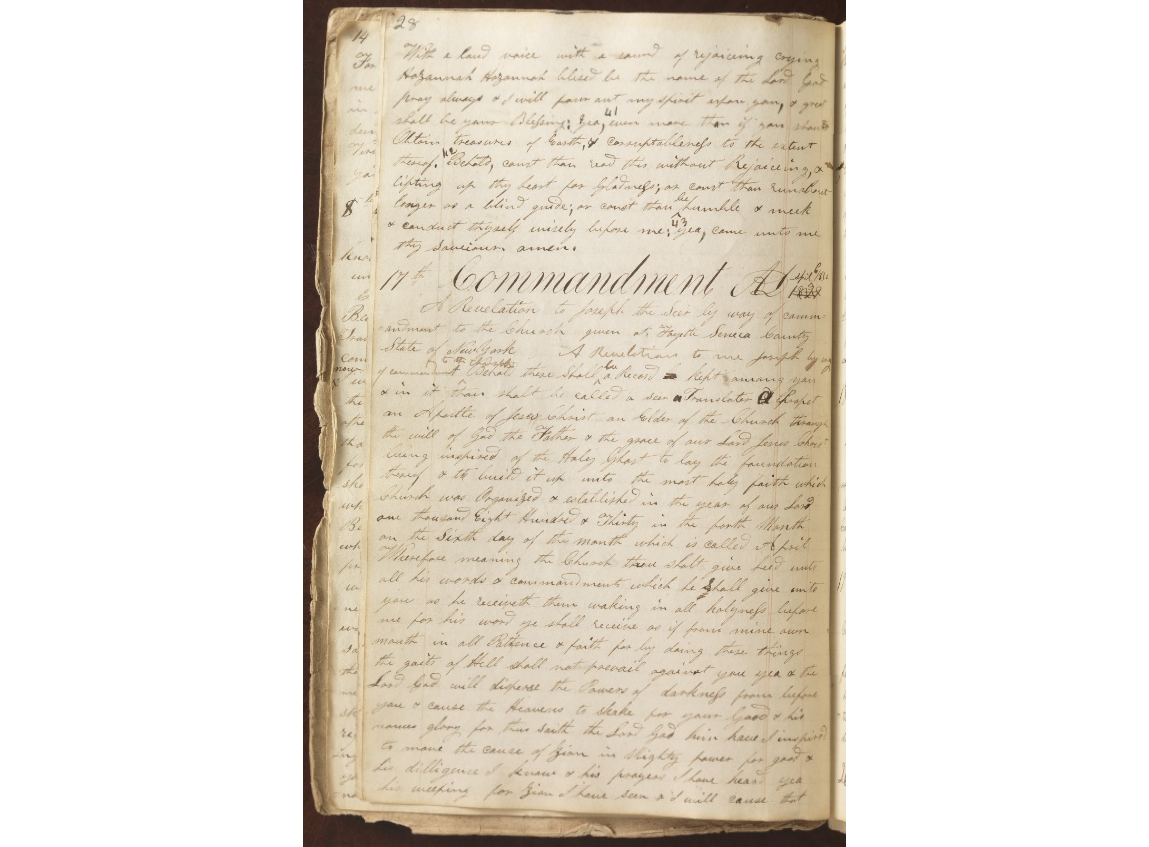 28
With a loud voice with a sound of rejoiceing crying
Hozannah Hozannah blessed be the name of the Lord God
pray always & I will pour out my spirit upon you, & great
shall be your Blessing; Yea, 41 even more than if you should
Obtain treasures of Earth, & corruptableness to the extent
thereof. 42 Behold, canst thou read this without Rejoiceing, &
lifting up thy heart for Gladness; or canst thou run about
longer as a blind guide; or canst thou be humble & meek
& conduct thyself wisely before me; 43 yea, come unto me
thy Saviour amen.
17th Commandment AD April 6 1830
A Revelation to Joseph the Seer by way of comm-
-andment to the Church given at Fayette Seneca County
State of New York A Revelation to me Joseph by way
of commandment Behold there Shall be a Record Kept among you
& in it thou shalt be called a seer a Translater a Prophet
an Apostle of Jesus Christ an Elder of the Church through
the will of God the Father & the grace of our Lord Jesus Christ
being inspired of the Holy Ghost to lay the foundation
thereof & to build it up unto the most holy faith which
Church was Organized & established in the year of our Lord
one thousand Eight Hundred & Thirty in the forth Month
on the Sixth day of the month which is called April
Wherefore meaning the Church thou shalt give heed unto
all his words & commandments which he shall give unto
you as he receiveth them walking in all holyness before
me for his word ye shall receive as if from mine own
mouth in all Patience & faith for by doing these things
the gaits of Hell shall not prevail against you yea & the
Lord God will disperse the Powers of darkness from before
you & cause the Heavens to shake for your Good & his
names glory for thus saith the Lord God him have I inspired
to move the cause of Zion in Mighty power for good &
his dilligence I know & his prayers I have heard yea
his weeping for Zion I have seen & I will cause that